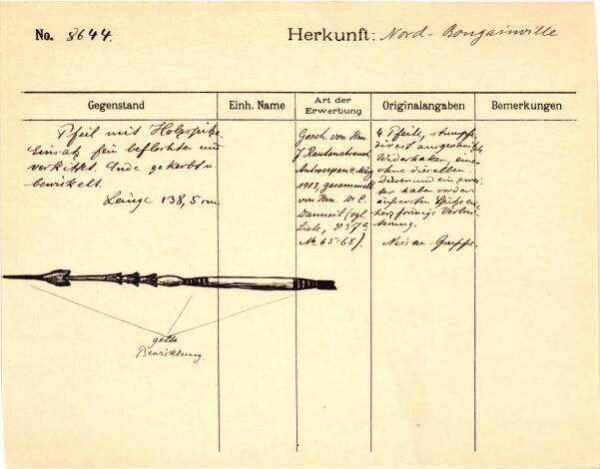 No. 8644. Herkunft: Nord-Bougainville
Gegenstand Einh. Name Art der Erwerbung Originalangaben Bemerkungen
Pfeil mit Holzspitze.
Einsatz fein beflochten und
verkittet. Ende gekerbt u.
bewickelt.
Länge 138,5 cm
Gesch. von Hrn.
J. Rautenstrauch,
Antwerpen,
1913, gesammelt
von Hrn. Dr. E.
(vgl.
Liste,
No 65-68).
4 Pfeile, stumpfe,
divers ausgeschnitzte
Widerhaken, einer
ohne dieselben
dieser und ein zwei-
ter haben vor der
äußersten Spitze eine
herzförmige Verbrei-
terung.
Nissan-Gruppe.
gelbe
Bewicklung.